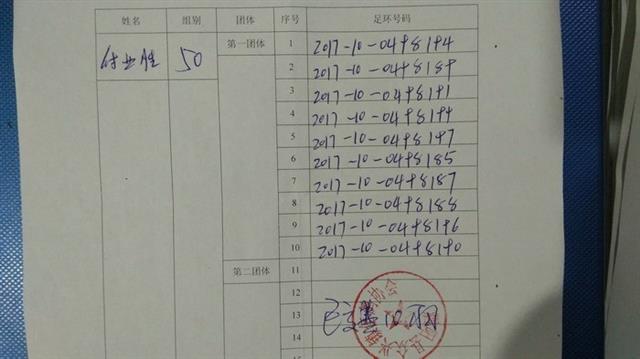 姓名 组别 团体 序号 足环号码
付业胜 50 第一团体 1 2017-10-0498194
2 2017-10-0498189
3 2017-10-0498191
4 2017-10-0498194
5 2017-10-0498197
6 2017-10-0498185
7 2017-10-0498187
8 2017-10-0498188
9 2017-10-0498196
10 2017-10-0498190
第二团体 11
12
13
14
协会